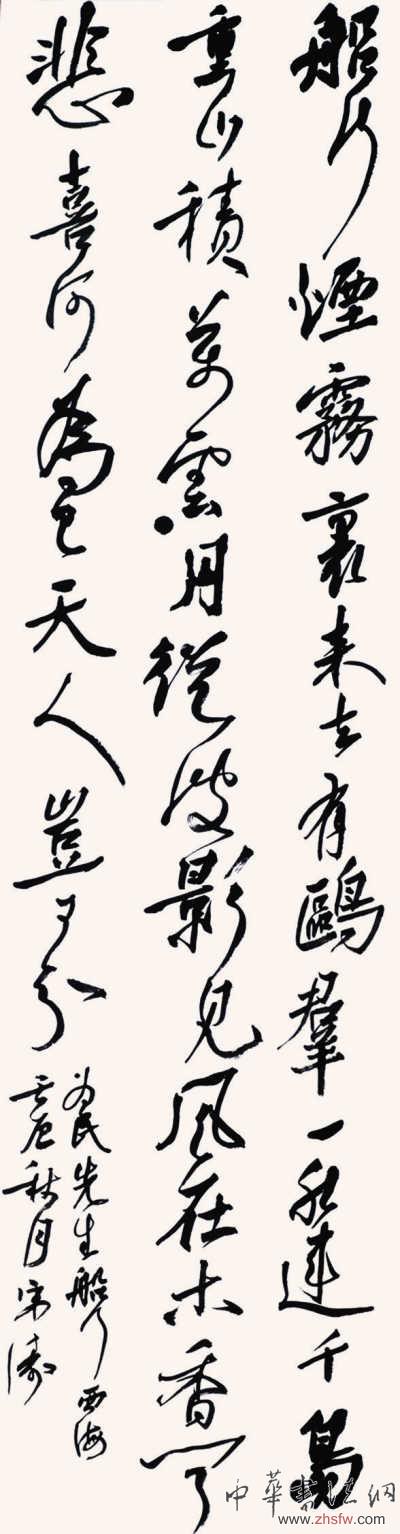 船行煙霧裏來去有鷗羣一水連千島
重山積萬雲月從波影見風在木香聞
悲喜何為天人豈可分
為民先生船行西海
辰秋月宋濤
中華書法網
www.zhsfw.com